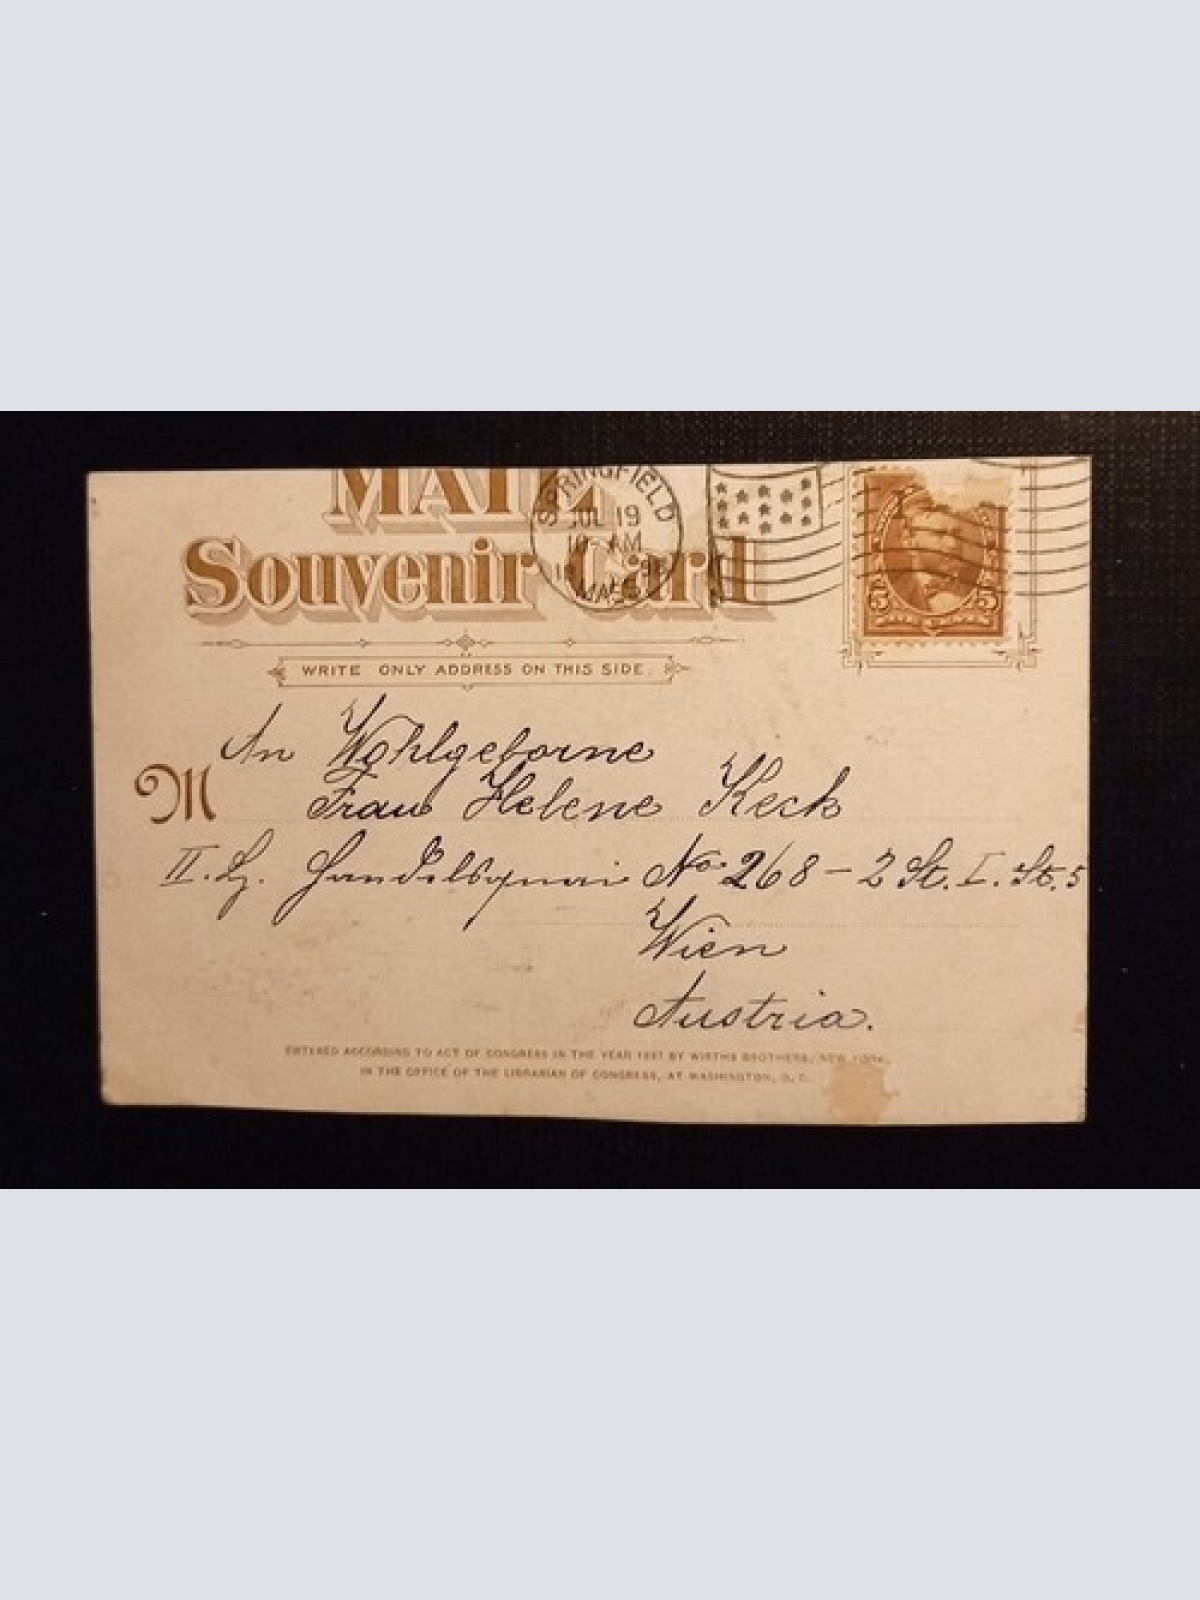 MAIL
Souvenir Card
SPRINGFIELD
JUL 19
10 AM
MASS
5 5
WRITE ONLY ADDRESS ON THIS SIDE.
An Wohlgeborne
M Frau Helene Keck
II. Handelsquai No 268 – 2 St. I. St. 5
Wien
Austria.
ENTERED ACCORDING TO ACT OF CONGRESS IN THE YEAR 1897 BY WIRTHS BROTHERS, NEW YORK,
IN THE OFFICE OF THE LIBRARIAN OF CONGRESS, AT WASHINGTON, D. C.